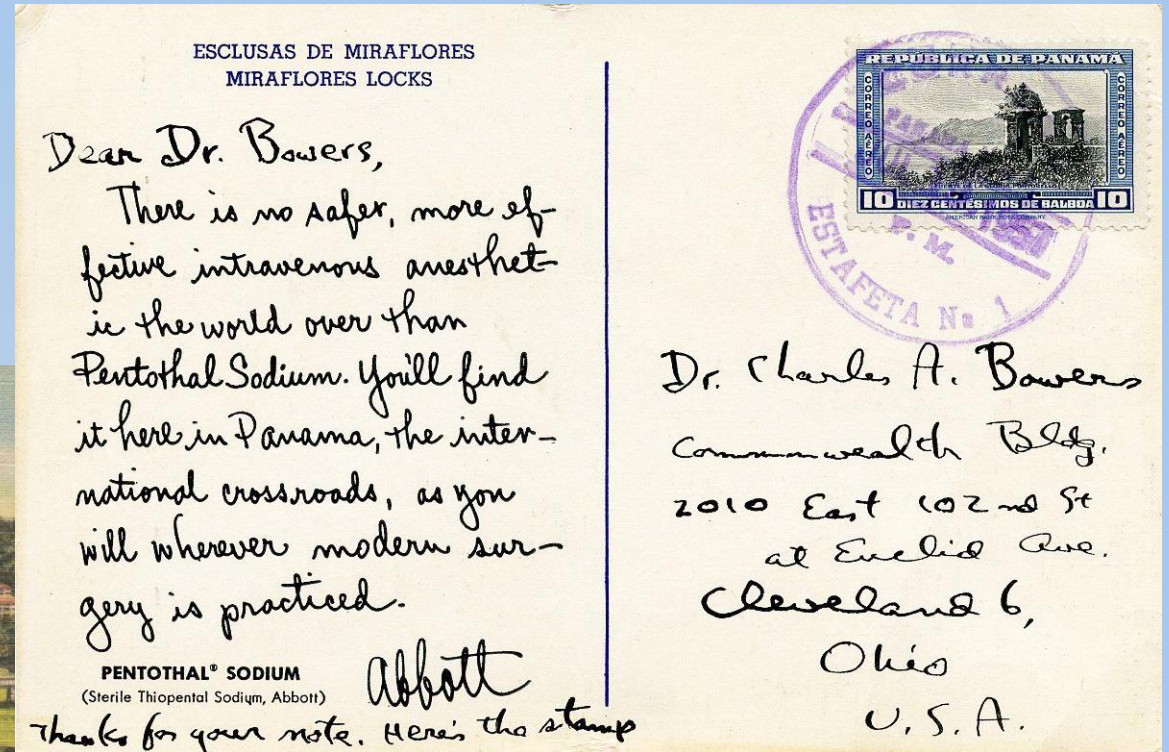 ESCLUSAS DE MIRAFLORES
MIRAFLORES LOCKS
Dear Dr. Bowers,
There is no safer, more ef-
fective intravenous anesthet-
ic the world over than
Pentothal Sodium. You'll find
it here in Panama, the inter-
national crossroads, as you
will wherever modern sur-
gery is practiced.
Abbott
PENTOTHAL® SODIUM
(Sterile Thiopental Sodium, Abbott)
Thanks for your note. Here's the stamp
REPÚBLICA DE PANAMÁ
CORREO AÉREO
CORREO AÉREO
10 DIEZ CENTÉSIMOS DE BALBOA 10
AMERICAN BANK NOTE COMPANY.
P. M.
ESTAFETA No 1
Dr. Charles A. Bowers
Commonwealth Bldg.
2010 East 102nd St
at Euclid Ave.
Cleveland 6,
Ohio
U.S.A.